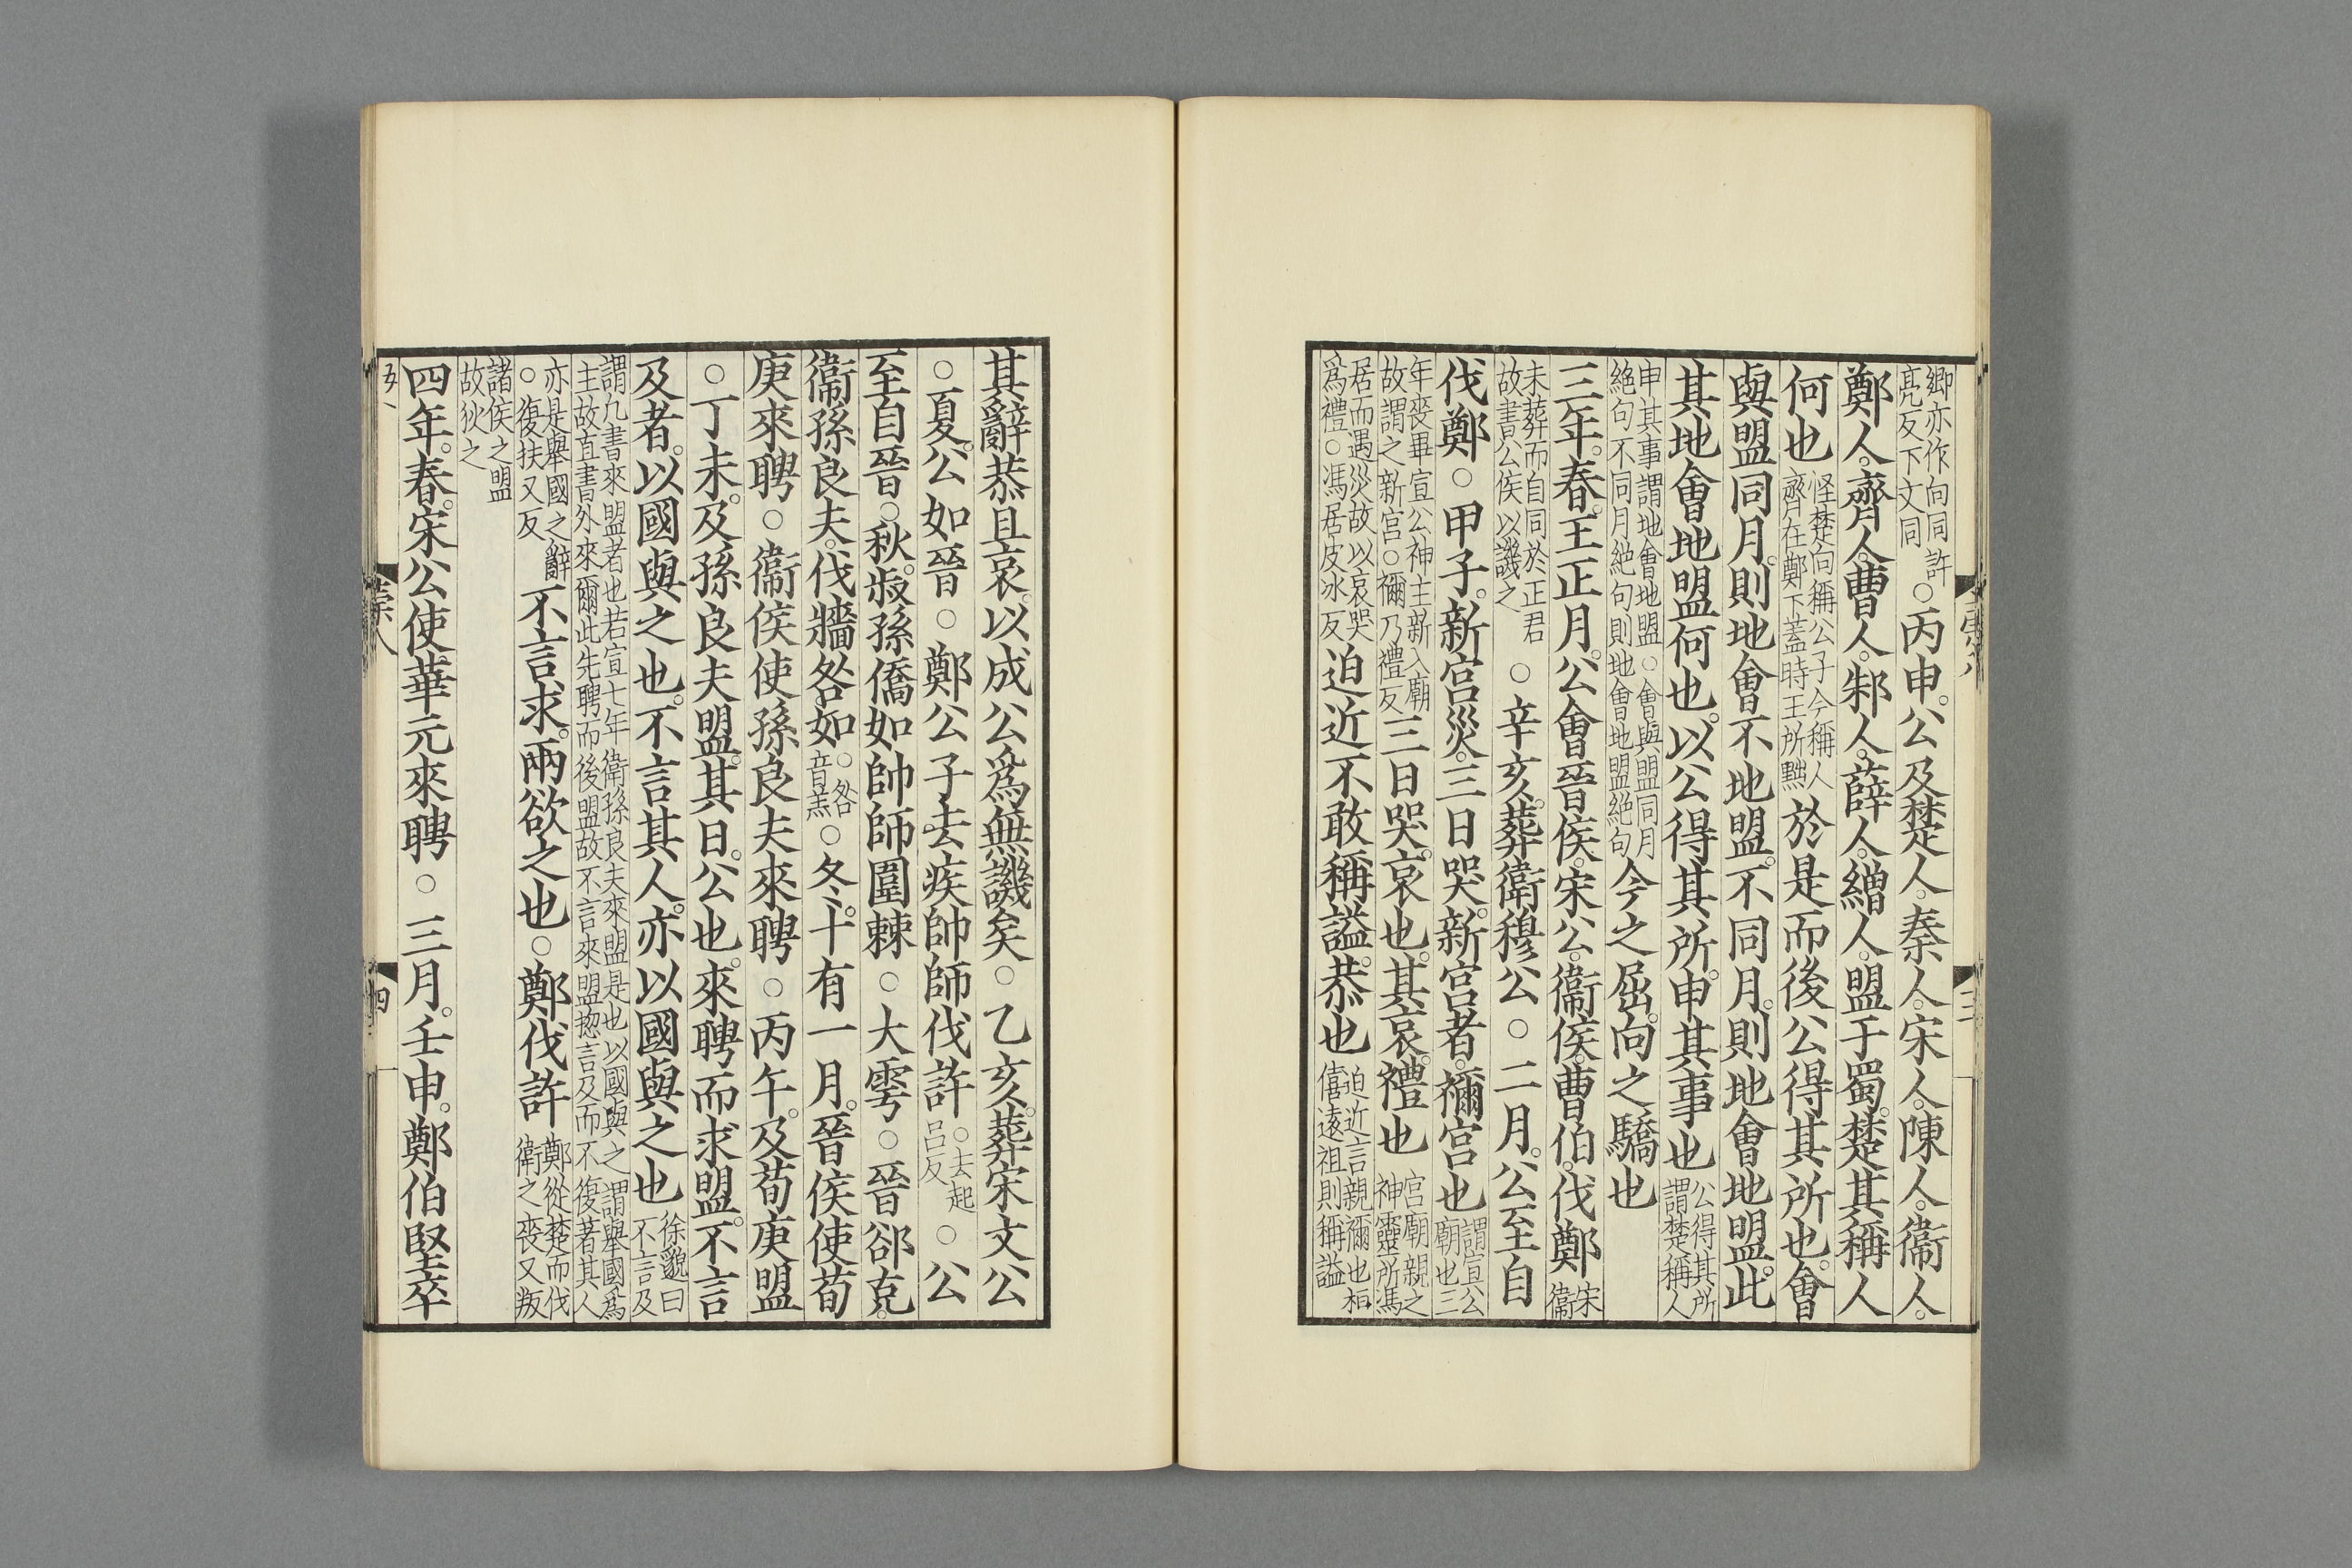 卿亦作向同許
亮反下文同
○丙申。公及楚人。秦人。宋人。陳人。衞人。
鄭人。齊人。曹人。邾人。薛人。繒人。盟于蜀。楚其稱人
何也
怪楚向稱公子今稱人
齊在鄭下蓋時王所黜
於是而後公得其所也。會
與盟同月。則地會不地盟。不同月。則地會地盟。此
其地會地盟何也。以公得其所。申其事也
公得其所
謂楚稱人
申其事謂地會地盟○會與盟同月
絶句不同月絶句則地會地盟絶句
今之屈。向之驕也
三年。春。王正月。公會晉侯。宋公。衞侯。曹伯。伐鄭
宋衞
未葬而自同於正君
故書公侯以譏之
○辛亥。葬衞穆公○二月。公至自
伐鄭○甲子。新宮災。三日哭。新宮者。禰宮也
謂宣公
廟也三
年喪畢宣公神主新入廟
故謂之新宮○禰乃禮反
三日哭。哀也。其哀。禮也
宮廟親之
神靈所馮
居而遇災故以哀哭
爲禮○馮居皮冰反
迫近不敢稱謚。恭也
迫近言親禰也桓
僖遠祖則稱謚
其辭恭且哀。以成公爲無譏矣○乙亥。葬宋文公
○夏。公如晉○鄭公子去疾帥師伐許
○去起
呂反
○公
至自晉○秋。叔孫僑如帥師圍棘○大雩○晉郤克。
衞孫良夫。伐牆咎如
○咎
音羔
○冬。十有一月。晉侯使荀
庚來聘○衞侯使孫良夫來聘○丙午。及荀庚盟
○丁未。及孫良夫盟。其日。公也。來聘而求盟。不言
及者。以國與之也。不言其人。亦以國與之也
徐邈曰
不言及
謂凡書來盟者也若宣七年衞孫良夫來盟是也以國與之謂舉國爲
主故直書外來爾此先聘而後盟故不言來盟揔言及而不復著其人
亦是舉國之辭
○復扶又反
不言求。兩欲之也○鄭伐許
鄭從楚而伐
衞之喪又叛
諸侯之盟
故狄之
四年。春。宋公使華元來聘○三月。壬申。鄭伯堅卒
四
三